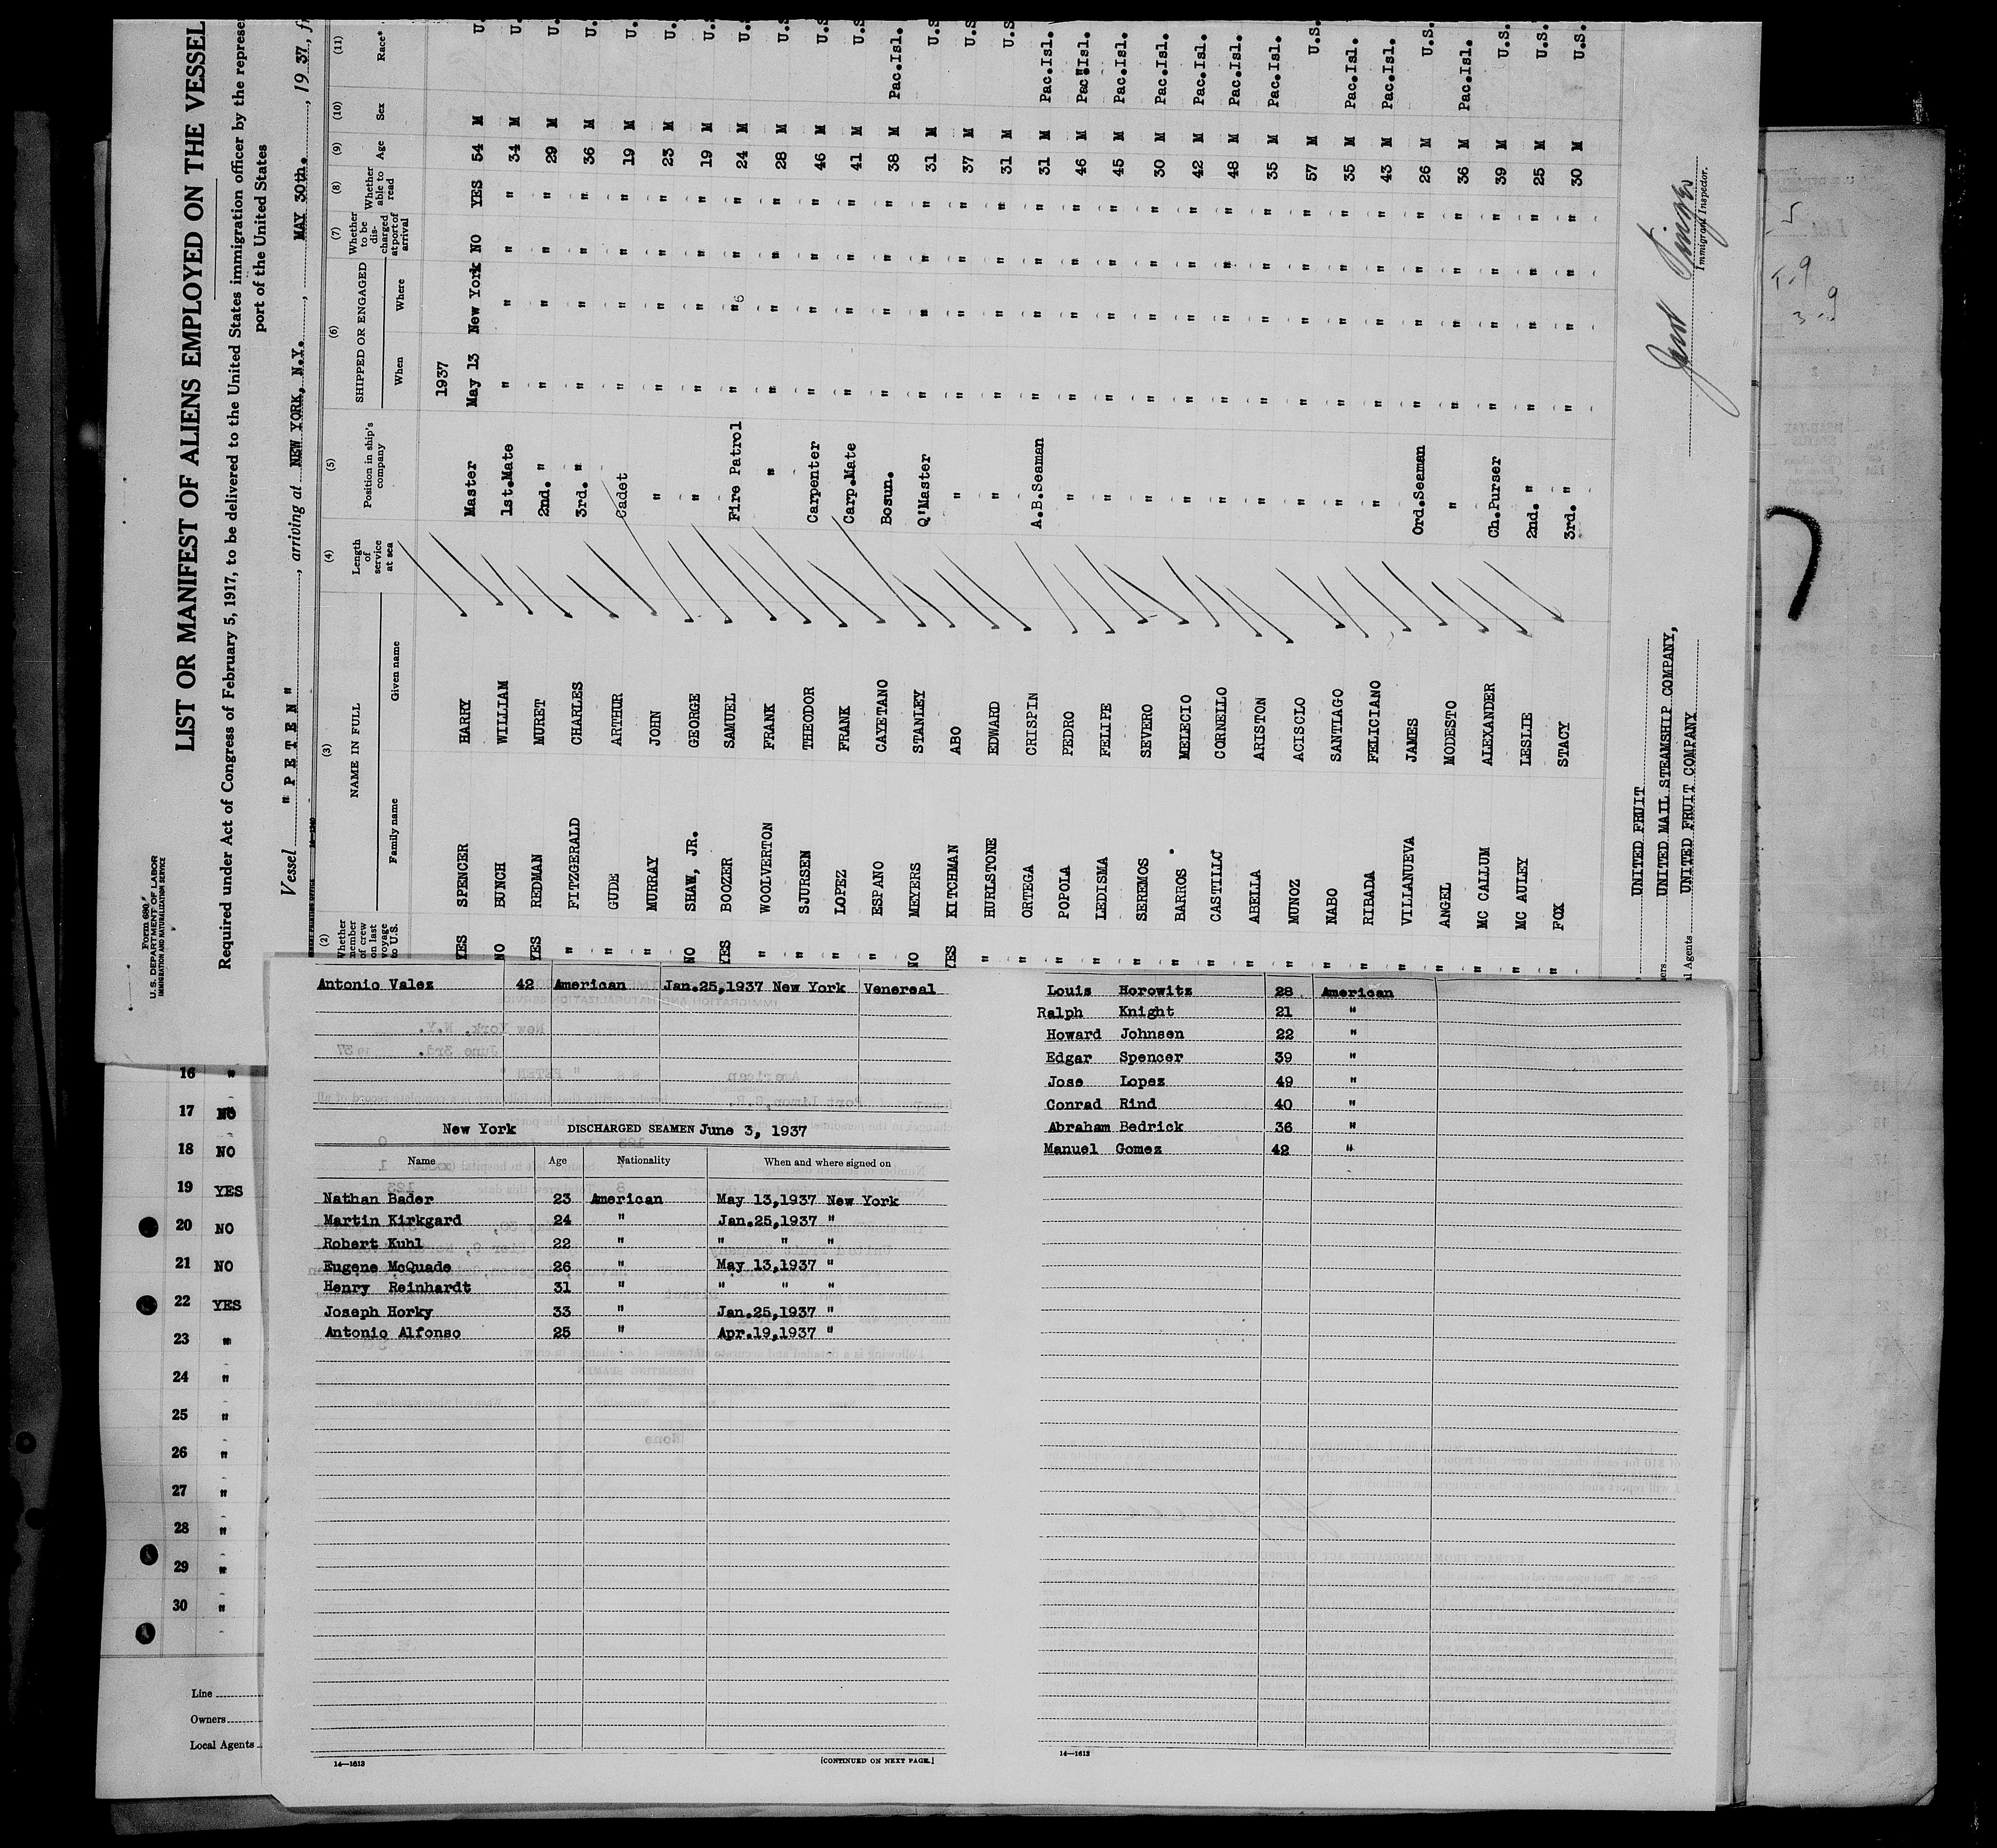 Form 680
U. S. DEPARTMENT OF LABOR
IMMIGRATION AND NATURALIZATION SERVICE
LIST OR MANIFEST OF ALIENS EMPLOYED ON THE VESSEL
Required under Act of Congress of February 5, 1917, to be delivered to the United States immigration officer by the represe
port of the United States
Vessel "PETEN", arriving at NEW YORK, N.Y., MAY 30th., 1937, f
(2) (3) (4) (5) (6) (7) (8) (9) (10) (11)
Whether member of crew on last voyage to U.S. NAME IN FULL Length of service at sea Position in ship's company SHIPPED OR ENGAGED Whether to be discharged at port of arrival Whether able to read Age Sex Race*
Family name Given name When Where
1937
YES SPENCER HARRY Master May 13 New York NO YES 54 M U.
NO BUNCH WILLIAM 1st.Mate " " " " 34 M U.
YES REDMAN MURET 2nd. " " " " " 29 M U.
" FITZGERALD CHARLES 3rd. " " " " " 36 M U.
" GUDE ARTHUR Cadet " " " " 19 M U.
" MURRAY JOHN " " " " " 23 M U.
NO SHAW, JR. GEORGE " " " " " 19 M U.
YES BOOZER SAMUEL Fire Patrol " " 6 " " 24 M U.
" WOOLVERTON FRANK " " " " " 28 M U.
" SJURSEN THEODOR Carpenter " " " " 46 M U.S
" LOPEZ FRANK Carp.Mate " " " " 41 M U.S
" ESPANO CAYETANO Bosun. " " " " 38 M Pac.Isl.
NO MEYERS STANLEY Q'Master " " " " 31 M U.S
YES KITCHMAN ABO " " " " " 37 M U.S
" HURLSTONE EDWARD " " " " " 31 M U.S
" ORTEGA CRISPIN A.B.Seaman " " " " 31 M Pac.Isl.
" POPOLA PEDRO " " " " " 46 M Pac.Isl.
" LEDISMA FELIPE " " " " " 45 M Pac.Isl.
" SEREMOS SEVERO " " " " " 30 M Pac.Isl.
" BARROS MELECIO " " " " " 42 M Pac.Isl.
" CASTILLO CORNELLO " " " " " 48 M Pac.Isl.
" ABELLA ARISTON " " " " " 35 M Pac.Isl.
" MUNOZ ACISCLO " " " " " 57 M U.S.
" NABO SANTIAGO " " " " " 35 M Pac.Isl.
" RIBADA FELICIANO " " " " " 43 M Pac.Isl.
" VILLANUEVA JAMES Ord.Seaman " " " " 26 M U.S.
" ANGEL MODESTO " " " " " 36 M Pac.Isl.
" MC CALLUM ALEXANDER Ch.Purser " " " " 39 M U.S.
" MC AULEY LESLIE 2nd. " " " " " 25 M U.S.
" FOX STACY 3rd. " " " " " 30 M U.S.
UNITED FRUIT
ers UNITED MAIL STEAMSHIP COMPANY,
l Agents UNITED FRUIT COMPANY
Immigrant Inspector.
Antonio Valez 42 American Jan.25,1937 New York Venereal
New York DISCHARGED SEAMEN June 3, 1937
Name Age Nationality When and where signed on
Nathan Bader 23 American May 13,1937 New York
Martin Kirkgard 24 " Jan.25,1937 "
Robert Kuhl 22 " " " "
Eugene McQuade 26 " May 13,1937 "
Henry Reinhardt 31 " " " "
Joseph Horky 33 " Jan.25,1937 "
Antonio Alfonso 25 " Apr.19,1937 "
14—1613 [CONTINUED ON NEXT PAGE.]
Louis Horowitz 28 American
Ralph Knight 21 "
Howard Johnsen 22 "
Edgar Spencer 39 "
Jose Lopez 49 "
Conrad Rind 40 "
Abraham Bedrick 36 "
Manuel Gomez 42 "
14—1613
16 "
17 NO
18 NO
19 YES
20 NO
21 NO
22 YES
23 "
24 "
25 "
26 "
27 "
28 "
29 "
30 "
Line
Owners
Local Agents